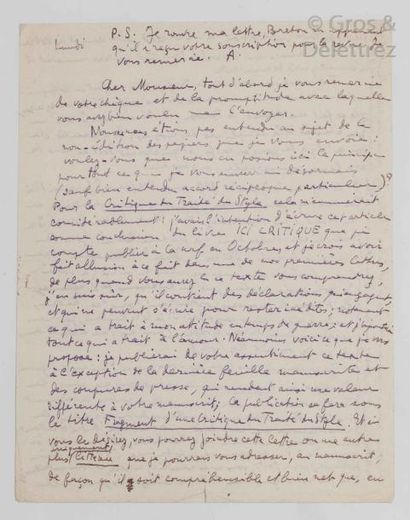 © Gros &
Delettrez
lundi P.S. Je rouvre ma lettre, Breton m'apprend
qu'il a reçu votre souscription pour la revue. Je
vous remercie. A.
Cher Monsieur, tout d'abord je vous remercie
de votre chèque et de la promptitude avec laquelle
vous avez bien voulu me l'envoyer.
Nous nous étions pas entendu au sujet de la
non-édition des papiers que je vous envoie :
voulez-vous que nous en posions ici le principe
pour tout ce que je vous enverrai désormais
(sauf bien entendu accord réciproque, particulier) ?
Pour la Critique du Traité du Style cela m'ennuierait
considérablement : j'avais l'intention d'écrire cet article
comme conclusion du livre ICI CRITIQUE que je
compte publier à la nrf en Octobre, et je crois avoir
fait allusion à ce fait dans une de nos premières lettres,
de plus quand vous aurez lu ce texte vous comprendrez,
j'en suis sûr, qu'il contient des déclarations qui engagent,
et qui ne peuvent s'écrire pour rester inédites ; notamment
ce qui a trait à mon attitude en temps de guerre ; et j'ajouterai
tout ce qui a trait à l'amour. Néanmoins voici ce que je vous
propose : je publierai de votre assentiment ce texte
à l'exception de la dernière feuille manuscrite et
des coupures de presse, qui rendent ainsi une valeur
différente à votre manuscrit ; la publication se fera sous
le titre Fragment d'une Critique du Traité du Style. Et si
vous le désirez, vous pourrez joindre cette lettre ou une autre
plus que je pourrais vous adresser, au manuscrit,
de façon qu'il soit compréhensible et bien net que, en